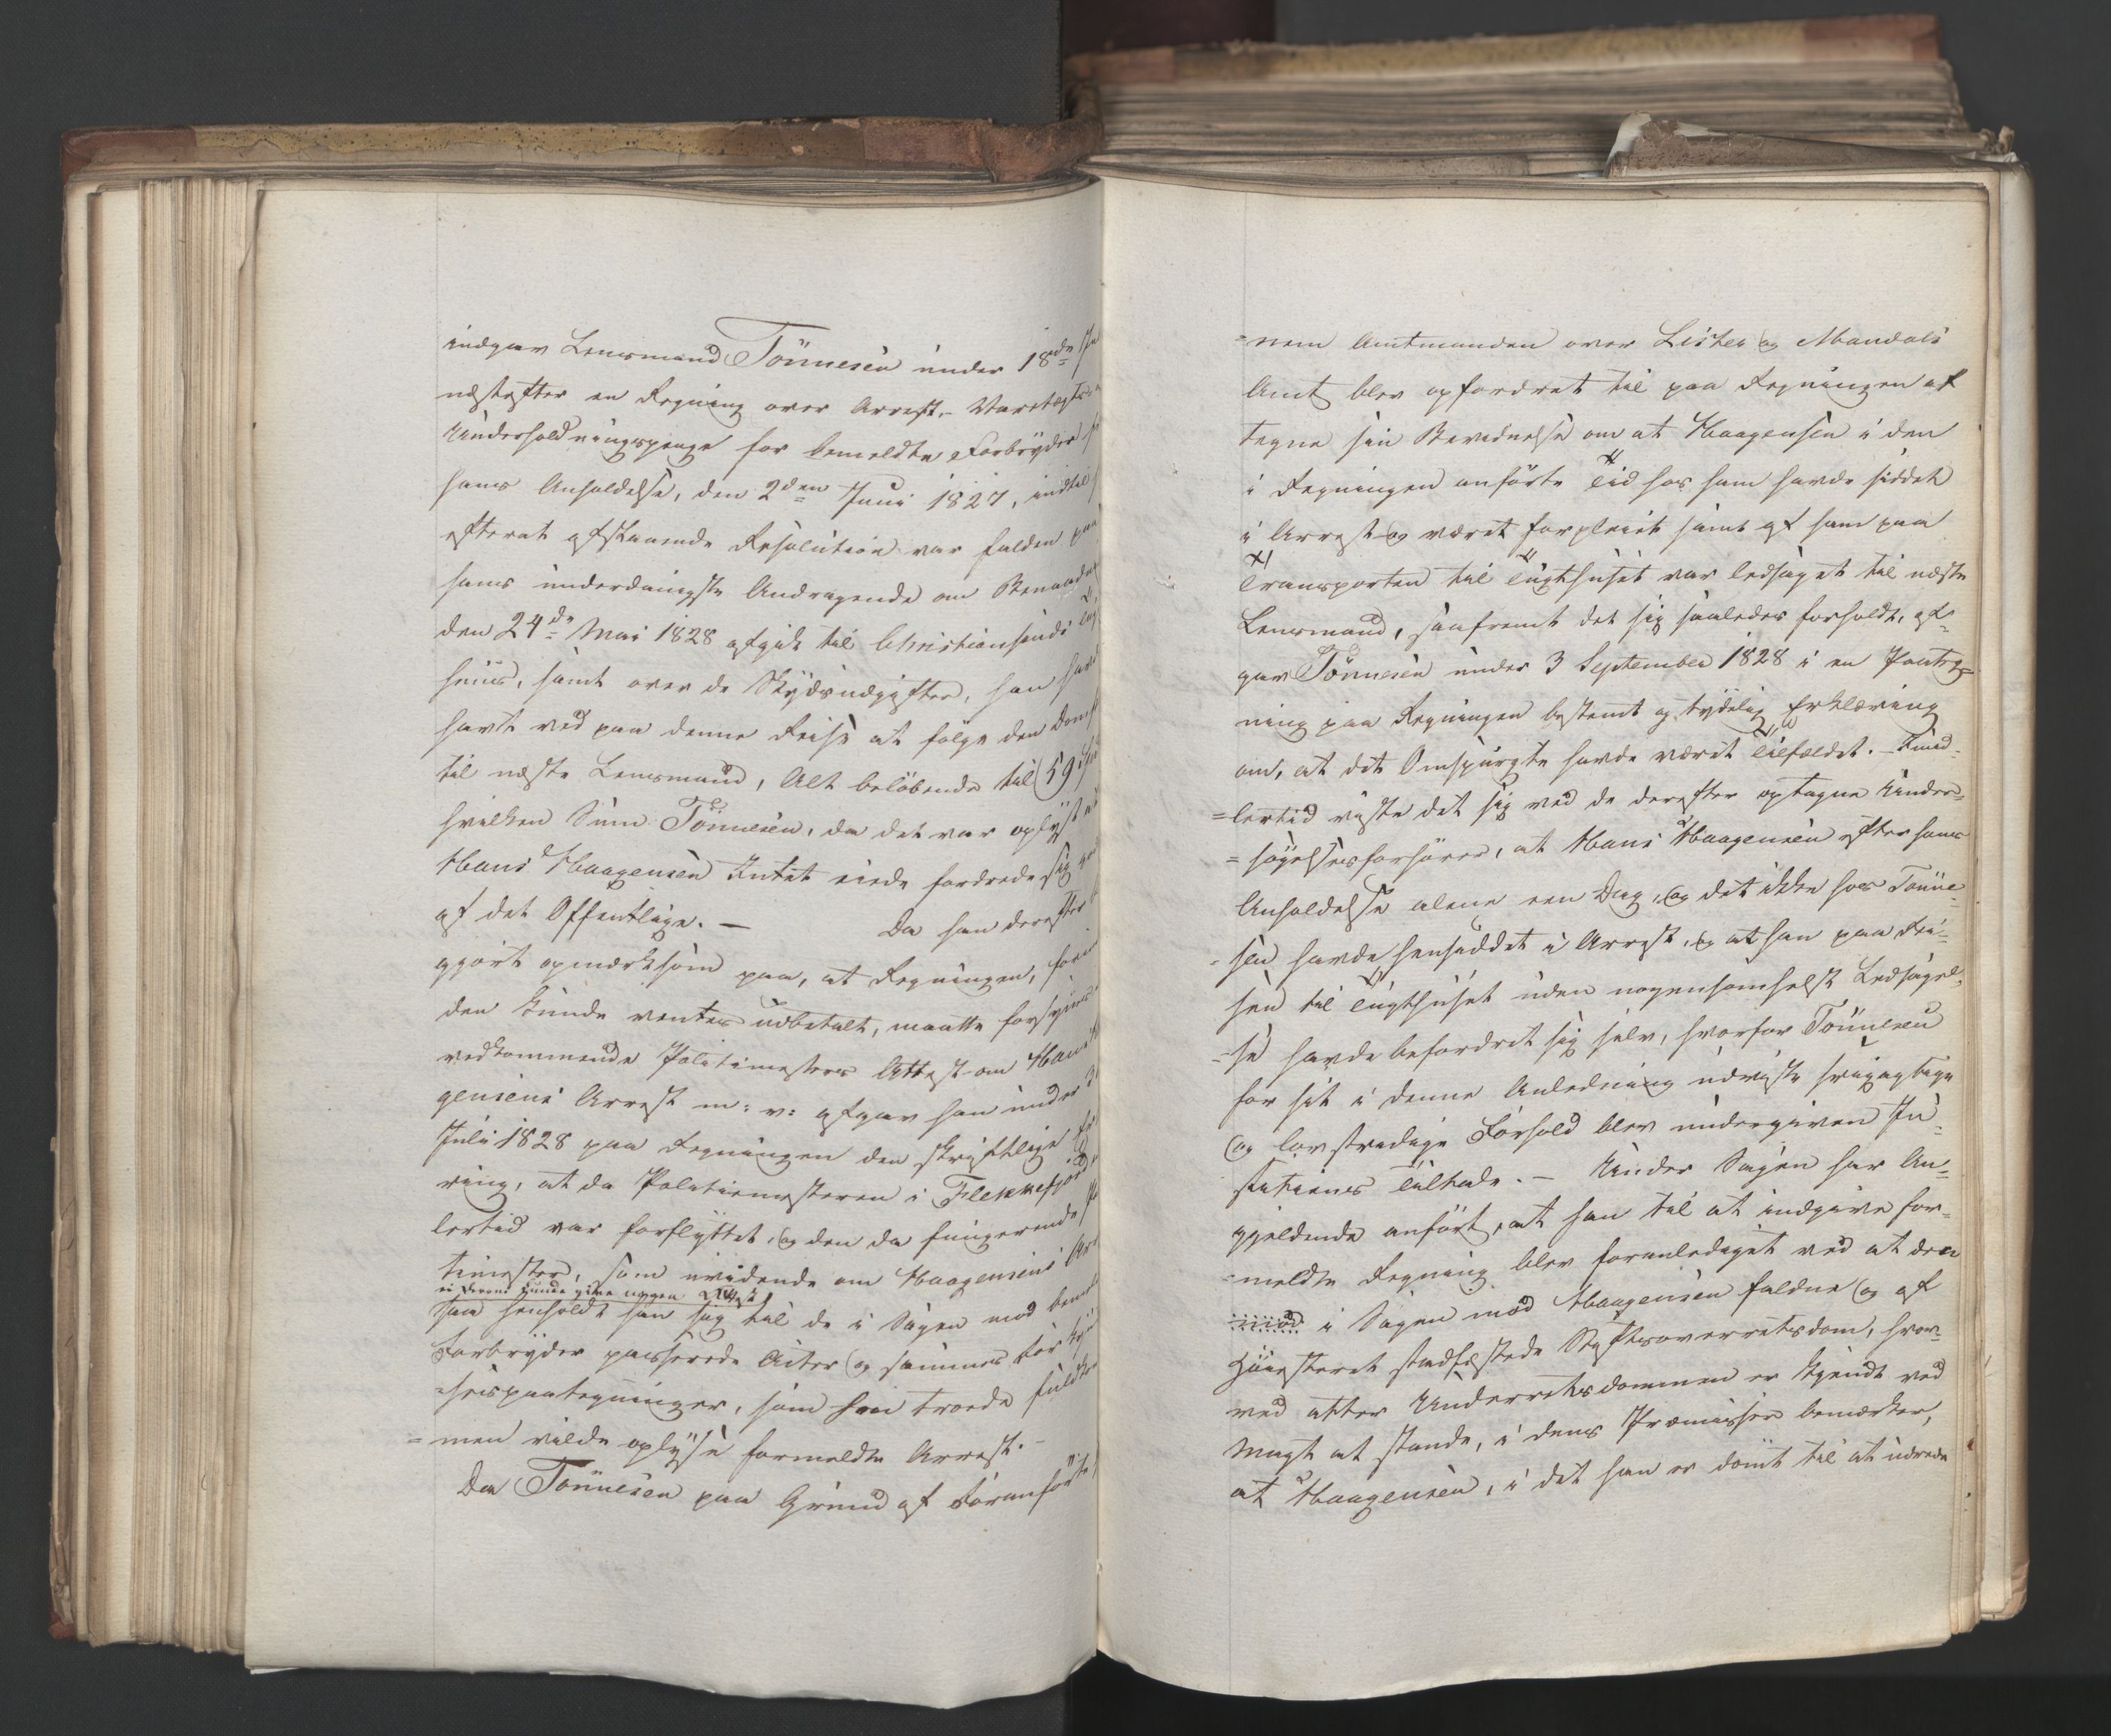 indgav Lensmand Tönnesen under 18de
næstefter en Regning over Arrest-, Varetægts-
Underholdningspenge for bemeldte Forbryder
hans Anholdelse, den 2den Juni 1827, indtil
efterat ovenstaaende Resolution var falden paa
hans underdanigste Andragende om Benaad
den 24de Mai 1828 afgik til Christiansands
huus, samt over de Skydsudgifter, han
havt ved paa denne Reise at følge den
til næste Lensmand, Alt beløbende til 59
hvilken Sum Tönnesen, da det var oplyst at
Hans Haagensen Intet eiede fordrede sig
af det Offentlige. — Da han derefter
gjort opmærksom paa, at Regningen, forin
den kunde ventes udbetalt, maatte forsynes
vedkommende Politimesters Attest om
gensens Arrest m: v: afgav han under
Juli 1828 paa Regningen den skriftlige
ring, at da Politiemesteren i Flekkefjord
lertid var forflyttet, og den da fungerende
timester, som uvidende om Haagensens
ei herom kunde give nogen Attest,
saa henholdt han sig til de i Sagen mod
Forbryder passerede Acter og sammes
-sespaategninger, som han troede fuldkom
=men vilde oplyse formeldte Arrest. —
Da Tönnesen paa Grund af Foranførte
=nem Amtmanden over Lister og Mandals
Amt blev opfordret til paa Regningen at
tegne sin Bevidnelse om at Haagensen i den
i Regningen anførte Tid hos ham havde siddet
i Arrest og været forpleiet samt af ham paa
Transporten til Tugthuset var ledsaget til næste
Lensmand, saafremt det sig saaledes forholdt, af-
gav Tönnesen under 3 September 1828 i en Paateg=
ning paa Regningen bestemt og tydelig Erklæring
om, at det Omspurgte havde været Tilfældet. — Imid-
=lertid viste det sig ved de derefter optagne Under=
=søgelsesforhører, at Hans Haagensen efter hans
Anholdelse alene een Dag, og det ikke hos Tönne-
=sen havde hensiddet i Arrest, og at han paa Rei=
sen til Tugthuset uden nogensomhelst Ledsagel-
=se havde befordret sig selv, hvorfor Tönnesen
for sit i denne Anledning udviste svigagtige
og lovstridige Forhold blev undergiven Ju-
stitiens Tiltale. — Under Sagen har An-
gjeldende anført, at han til at indgive for-
=meldte Regning blev foranlediget ved at den
mod i Sagen mod Haagensen faldne og af
Høiesteret stadfæstede Stiftsoverretsdom, hvor-
ved atter Underretsdommen er kjendt ved
Magt at stande, i dens Præmisser bemærker,
at Haagensen, i det han er dømt til at udrede